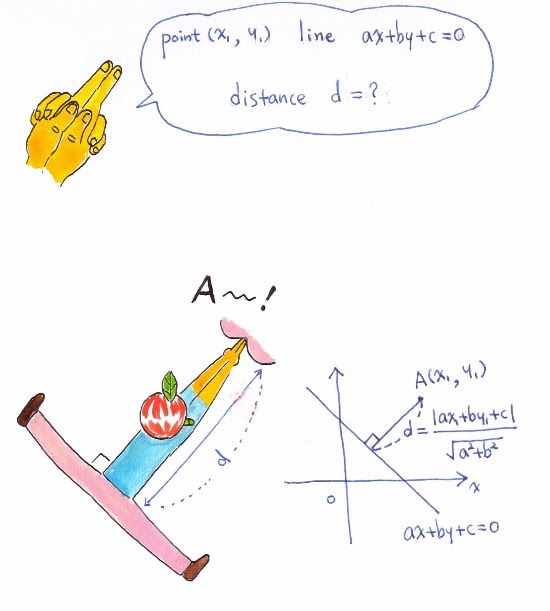 point (x₁, y₁) line ax+by+c=0
distance d=?
A~~!
d
A(x₁, y₁)
d=|ax₁+by₁+c|/√a²+b²
x
0
ax+by+c=0